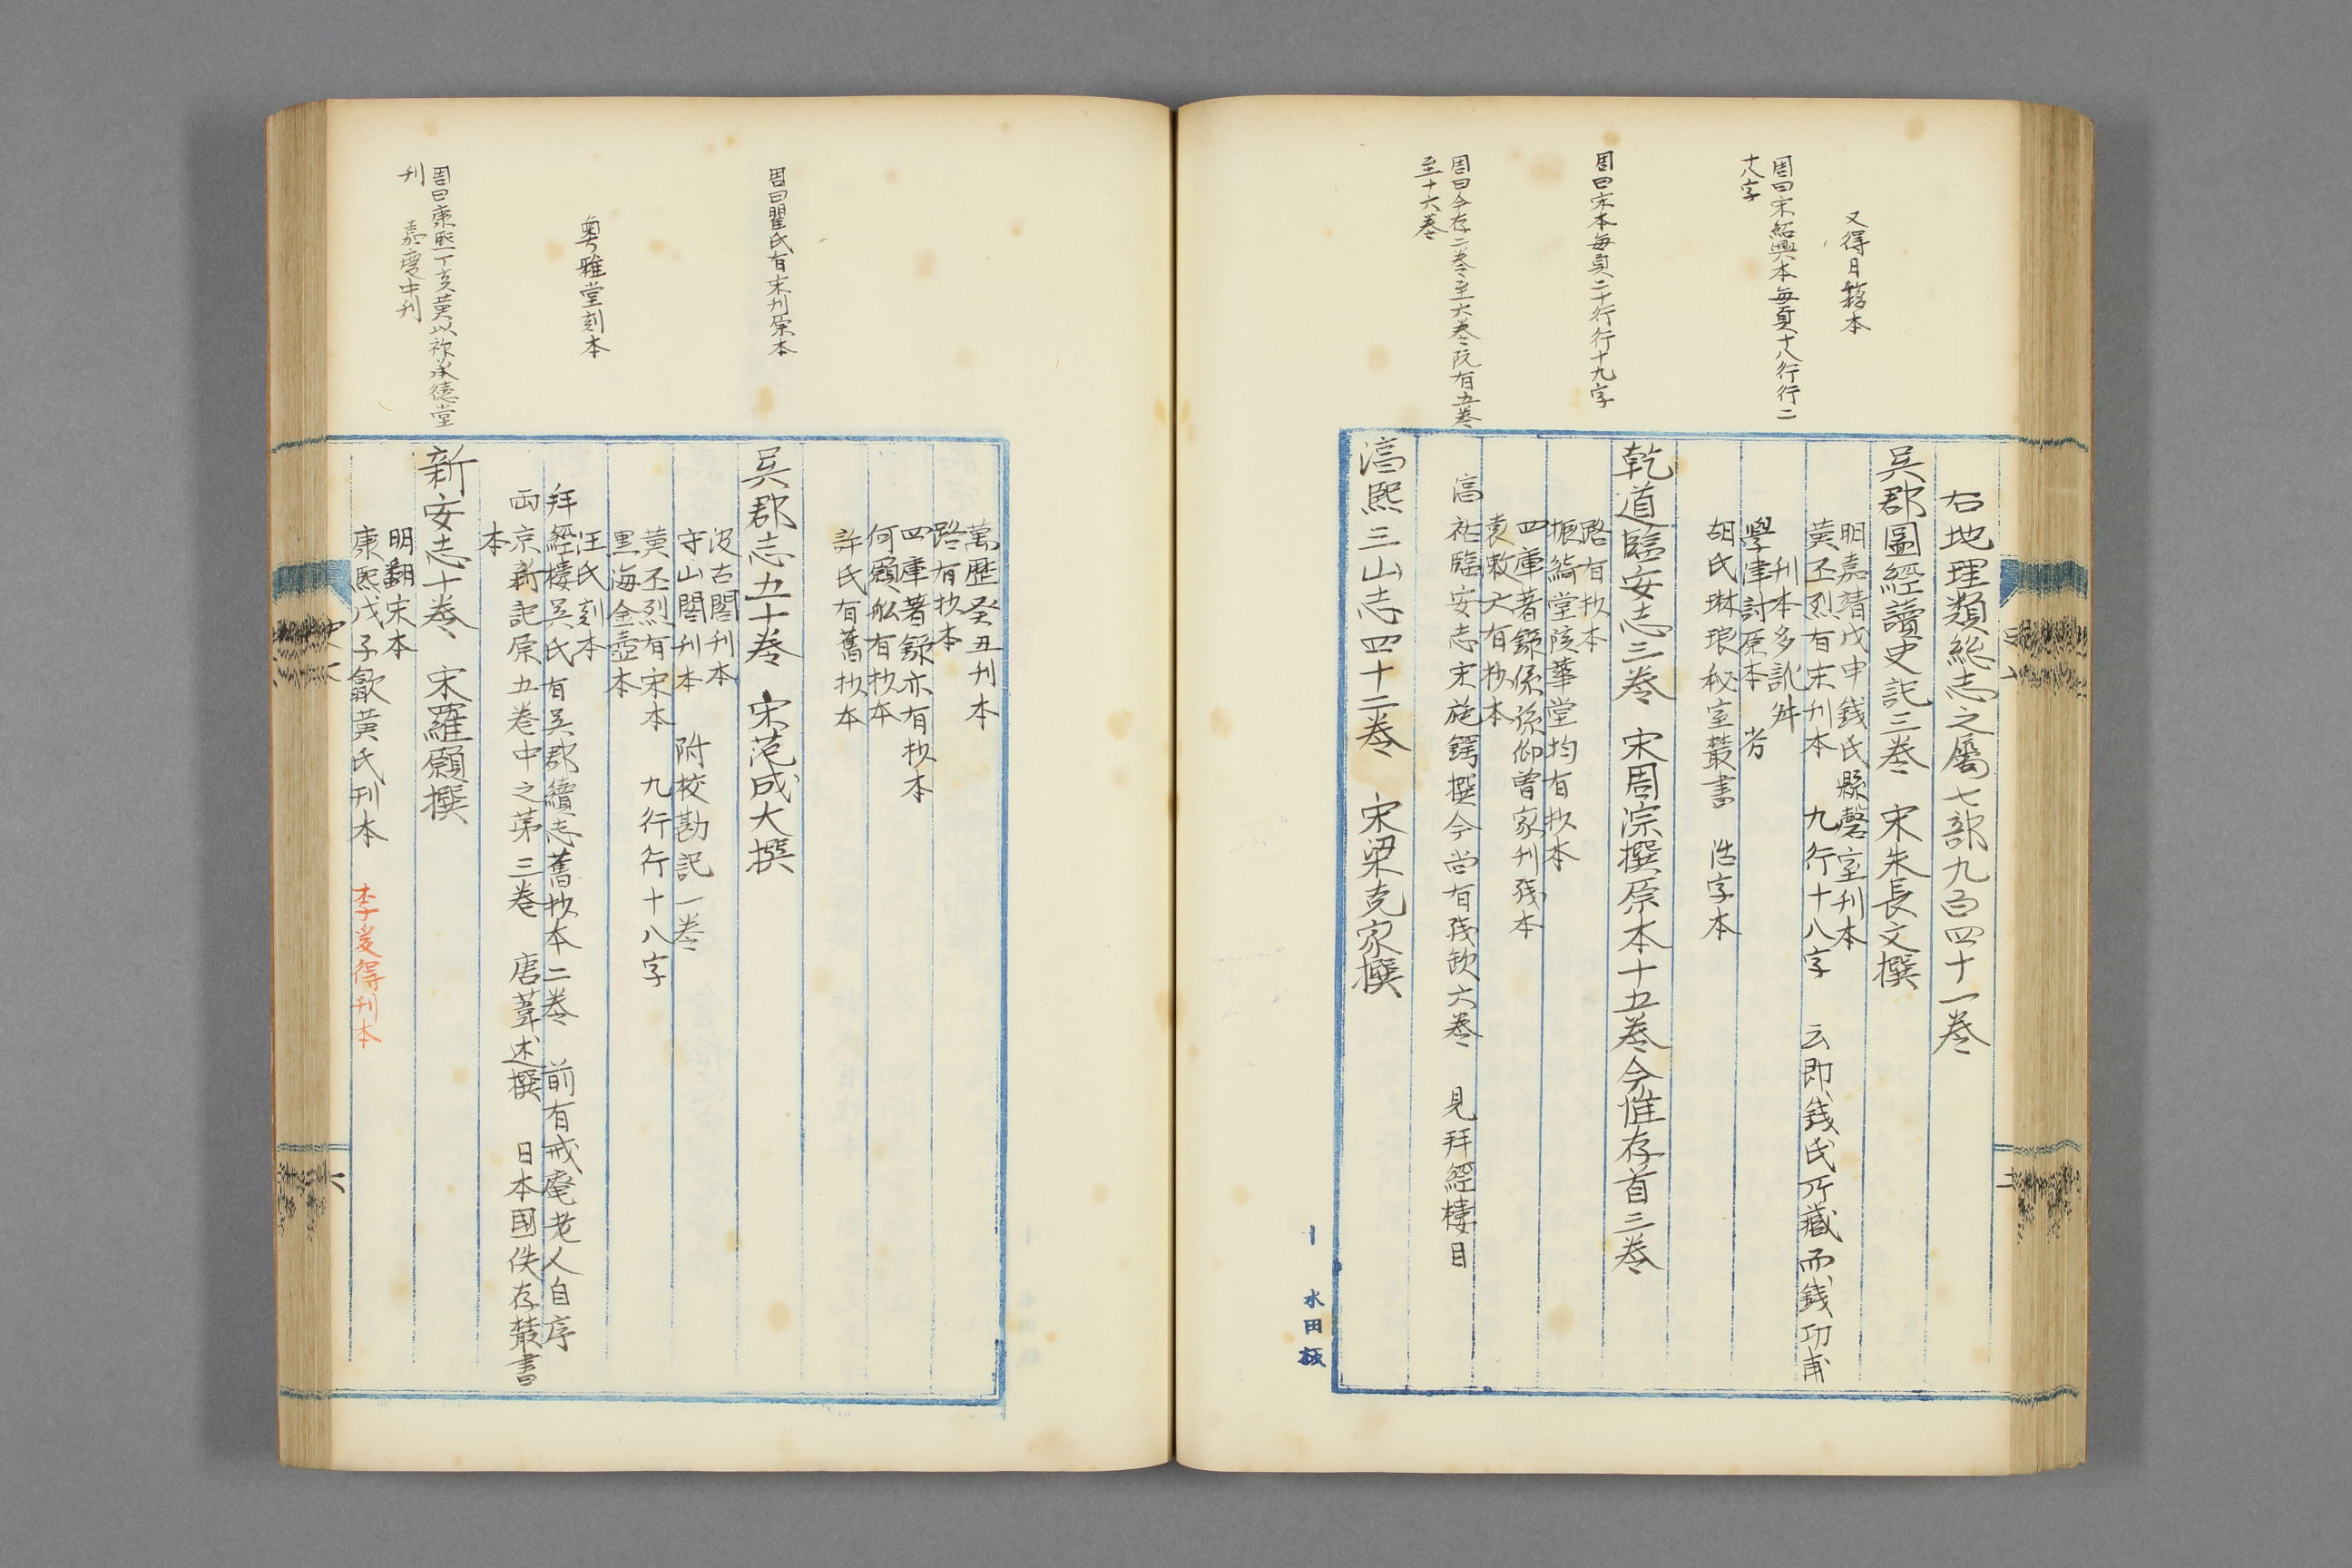 又得日籍本
周曰宋紹興本每頁十八行行二
十八字
周曰宋本每頁二十行行十九字
周曰今存二卷至六卷阮有五卷
至十六卷
右地理類総志之屬七部九百四十一卷
吳郡圖經讀史記三卷 宋朱長文撰
明嘉靖戊申錢氏縣磬室刊本
黃丕烈有宋刊本 九行十八字 云即錢氏所藏而錢功甫
刊本多訛舛
學津討原本 劣
胡氏琳琅秘室叢書 活字本
乾道臨安志三卷 宋周淙撰原本十五卷今惟存首三卷
路有抄本
振綺堂陔華堂均有抄本
四庫著錄係孫仰曾家刊殘本
袁漱六有抄本
淳祐臨安志宋施鍔撰今尚有殘缺六卷 見拜經樓目
淳熙三山志四十二卷 宋梁克家撰
水田板
周曰瞿氏有宋刊原本
粵雅堂刻本
周曰康熙丁亥黃以祚承德堂
刊 嘉慶中刊
萬歷癸丑刊本
路有抄本
四庫著錄亦有抄本
何願船有抄本
許氏有舊抄本
吳郡志五十卷 宋范成大撰
汲古閣刊本
守山閣刊本 附校勘記一卷
黃丕烈有宋本 九行行十八字
墨海金壺本
汪氏刻本
拜經樓吳氏有吳郡續志舊抄本二卷 前有戒庵老人自序
兩京新記原五卷中之第三卷 唐葦述撰 日本國佚存叢書
本
新安志十卷 宋羅願撰
明翻宋本
康熙戊子歙黃氏刊本 李爰得刊本
六